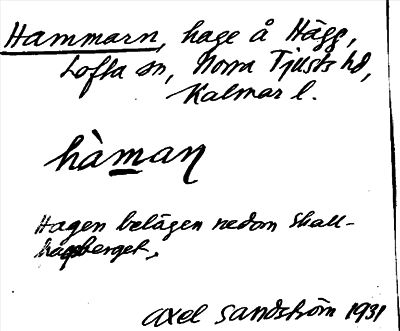 Hammarn, hage å Hägg,
Lofta sn, Norra Tjusts hd,
Kalmar l.
hàman
Hagen belägen nedom Skall-
berget,
Axel Sandström 1931